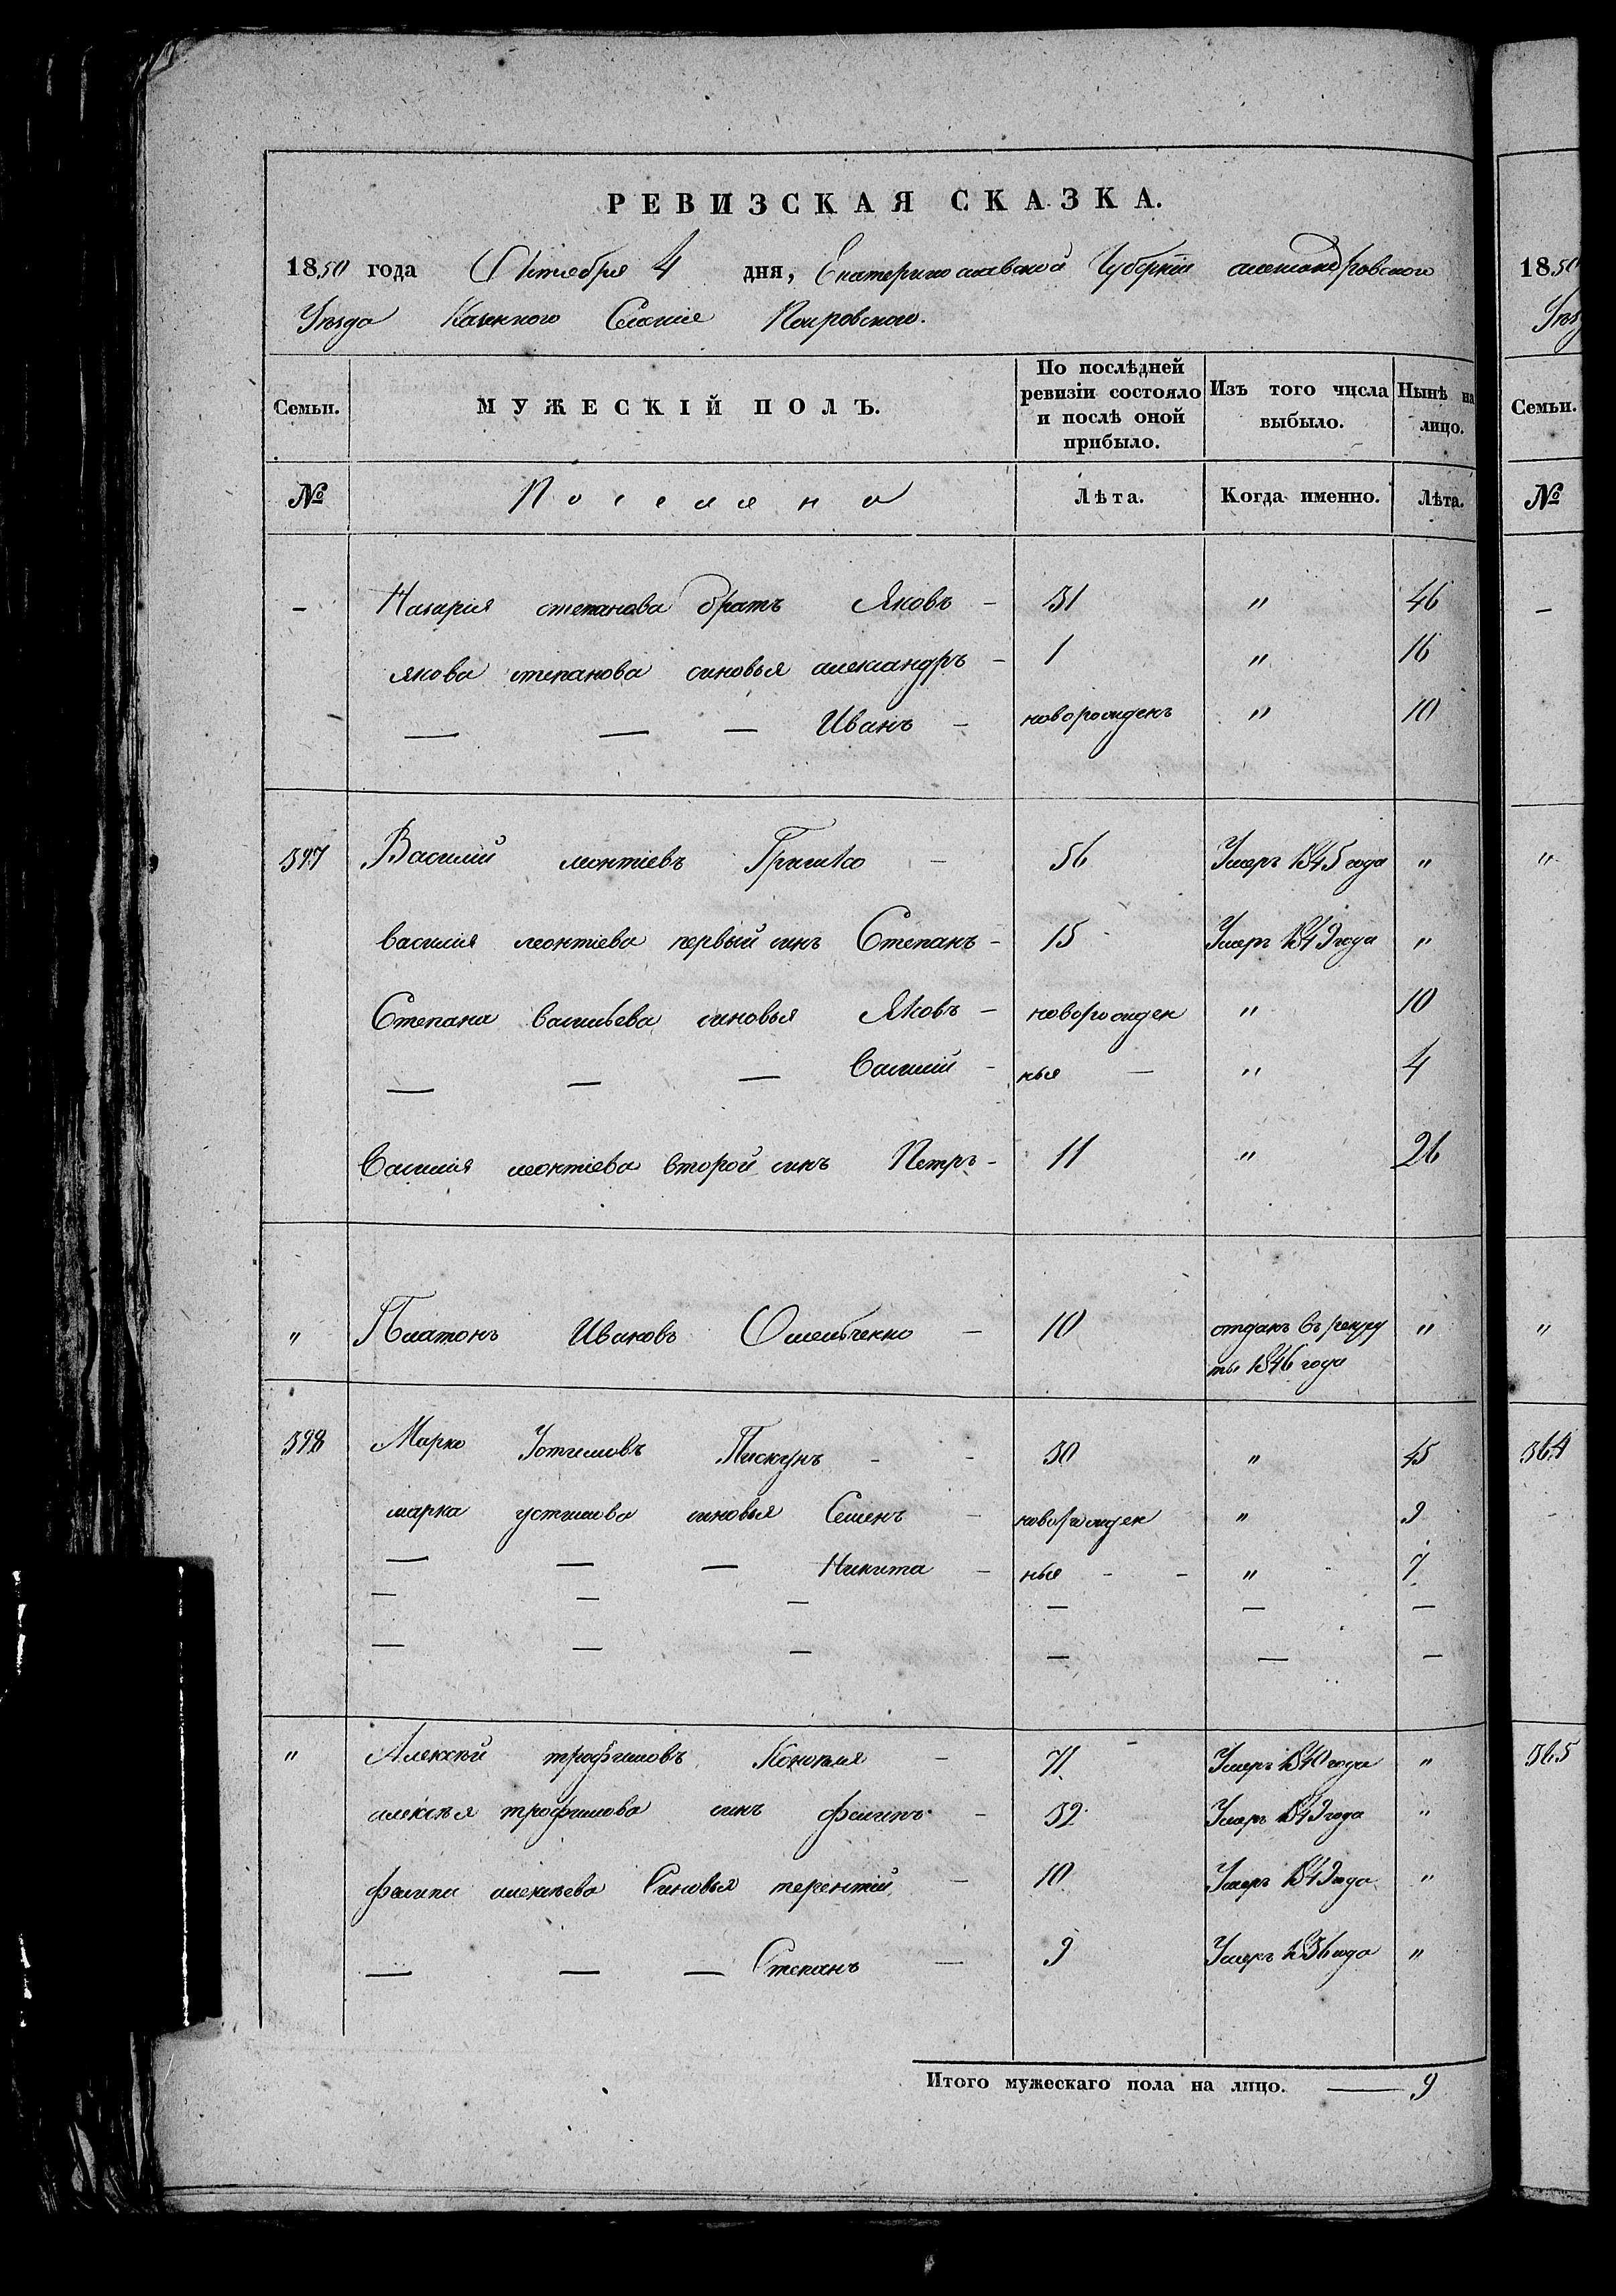 РЕВИЗСКАЯ СКАЗКА.
1850 года Октября 4 дня, Екатеринославской Губерніи александровского
Уѣзда Казенного Селенія Покровского.
Семьи. МУЖЕСКІЙ ПОЛЪ. По послѣдней ревизіи состояло и послѣ оной прибыло. Изъ того числа выбыло. Нынѣ на лицо.
№ Поселяне Лѣта. Когда именно. Лѣта.
— Назария степанова братъ Яковъ — 31 " 46
якова степанова синовья александръ — 1 " 16
— — — Иванъ — новорожденъ " 10
397 Василий леонтіевъ Гришко — 56 Умеръ 1845 года "
василия леонтіева первый синъ Степанъ — 15 Умеръ 1849 года "
Степана васильева синовья Яковъ — новорожден " 10
— — — Василий — ныя — " 4
Василия леонтіева второй синъ Петръ — 11 " 26
" Платонъ Ивановъ Омельченко — 10 отданъ въ рекру "
ты 1846 года
398 Марко Устимовъ Пискунъ - - 30 " 45
марка устимова синовья Семенъ - новорожден " 9
— — — Никита — ныя - - " 7
— — — — — —
— — — — — —
" Алексѣй трофимовъ Конопля — 71 Умеръ 1840 года "
алексѣя трофимова синъ филипъ — 32 Умеръ 1849 года "
филипа алексѣева Синовья терентій — 10 Умеръ 1849 года "
— — — Степанъ — 9 Умеръ 1836 года "
Итого мужескаго пола на лицо. — 9
1850
Уѣз
Семьи.
№
—
"
"
364
365